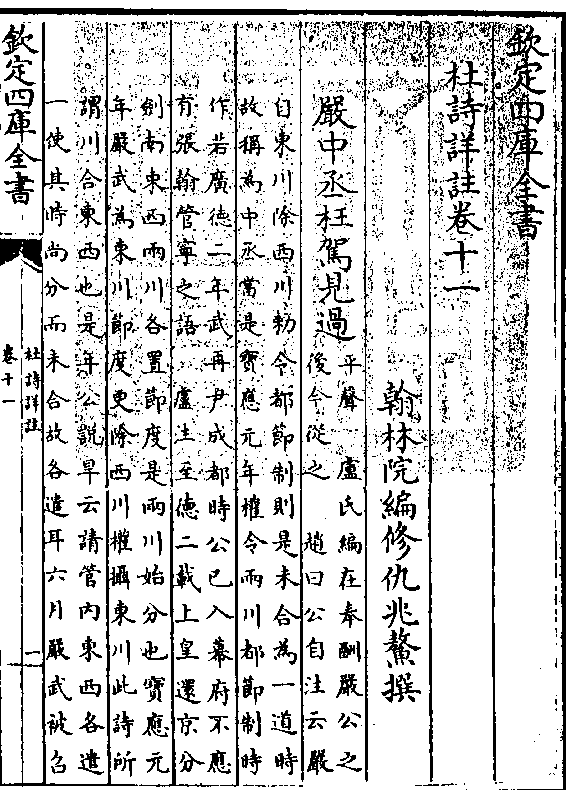 欽定四庫全書
杜詩詳註卷十一
翰林院編修仇兆鰲撰
嚴中丞枉駕見過
平聲 盧氏編在奉酬嚴公之
後今從之 趙曰公自注云嚴
自東川除西川勅令都節制則是未合為一道時
故稱為中丞當是寶應元年權令兩川都節制時
作若廣德二年武再尹成都時公已入幕府不應
有張翰管寧之語 盧注至德二載上皇還京分
劍南東西兩川各置節度是兩川始分也寶應元
年嚴武為東川節度更除西川權攝東川此詩所
謂川合東西也是年公說旱云請管內東西各遣
一使其時尚分而未合故各遣耳六月嚴武被召
欽定四庫全書
杜詩詳註
卷十一
一